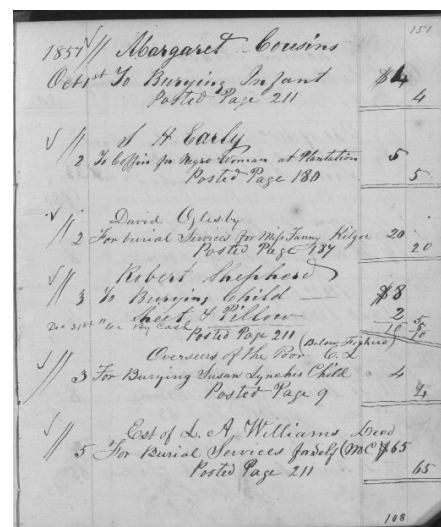 151
1857 √ // Margaret Cousins
Oct 1st To Burying Infant $4
Posted Page 211 4
√ // S H Early
2 To Coffin for Negro Woman at Plantation 5
Posted Page 180 5
√ // David Oglesby
2 For burial Services for Miss Fanny Kilgore 20
Posted Page 187 20
√ // Robert Shepherd
3 To Burying Child — $8
Sheet & Pillow 2
Dec 31st By Cash
Posted Page 211 (Below Fighers) 10 10
√ // Overseers of the Poor C. L
3 For Burying Susan Lynches Child 4
Posted Page 9 4
√ // Est of L. A. Williams Decd
5 For Burial Services for Self (M C) $65
Posted Page 211 65
108